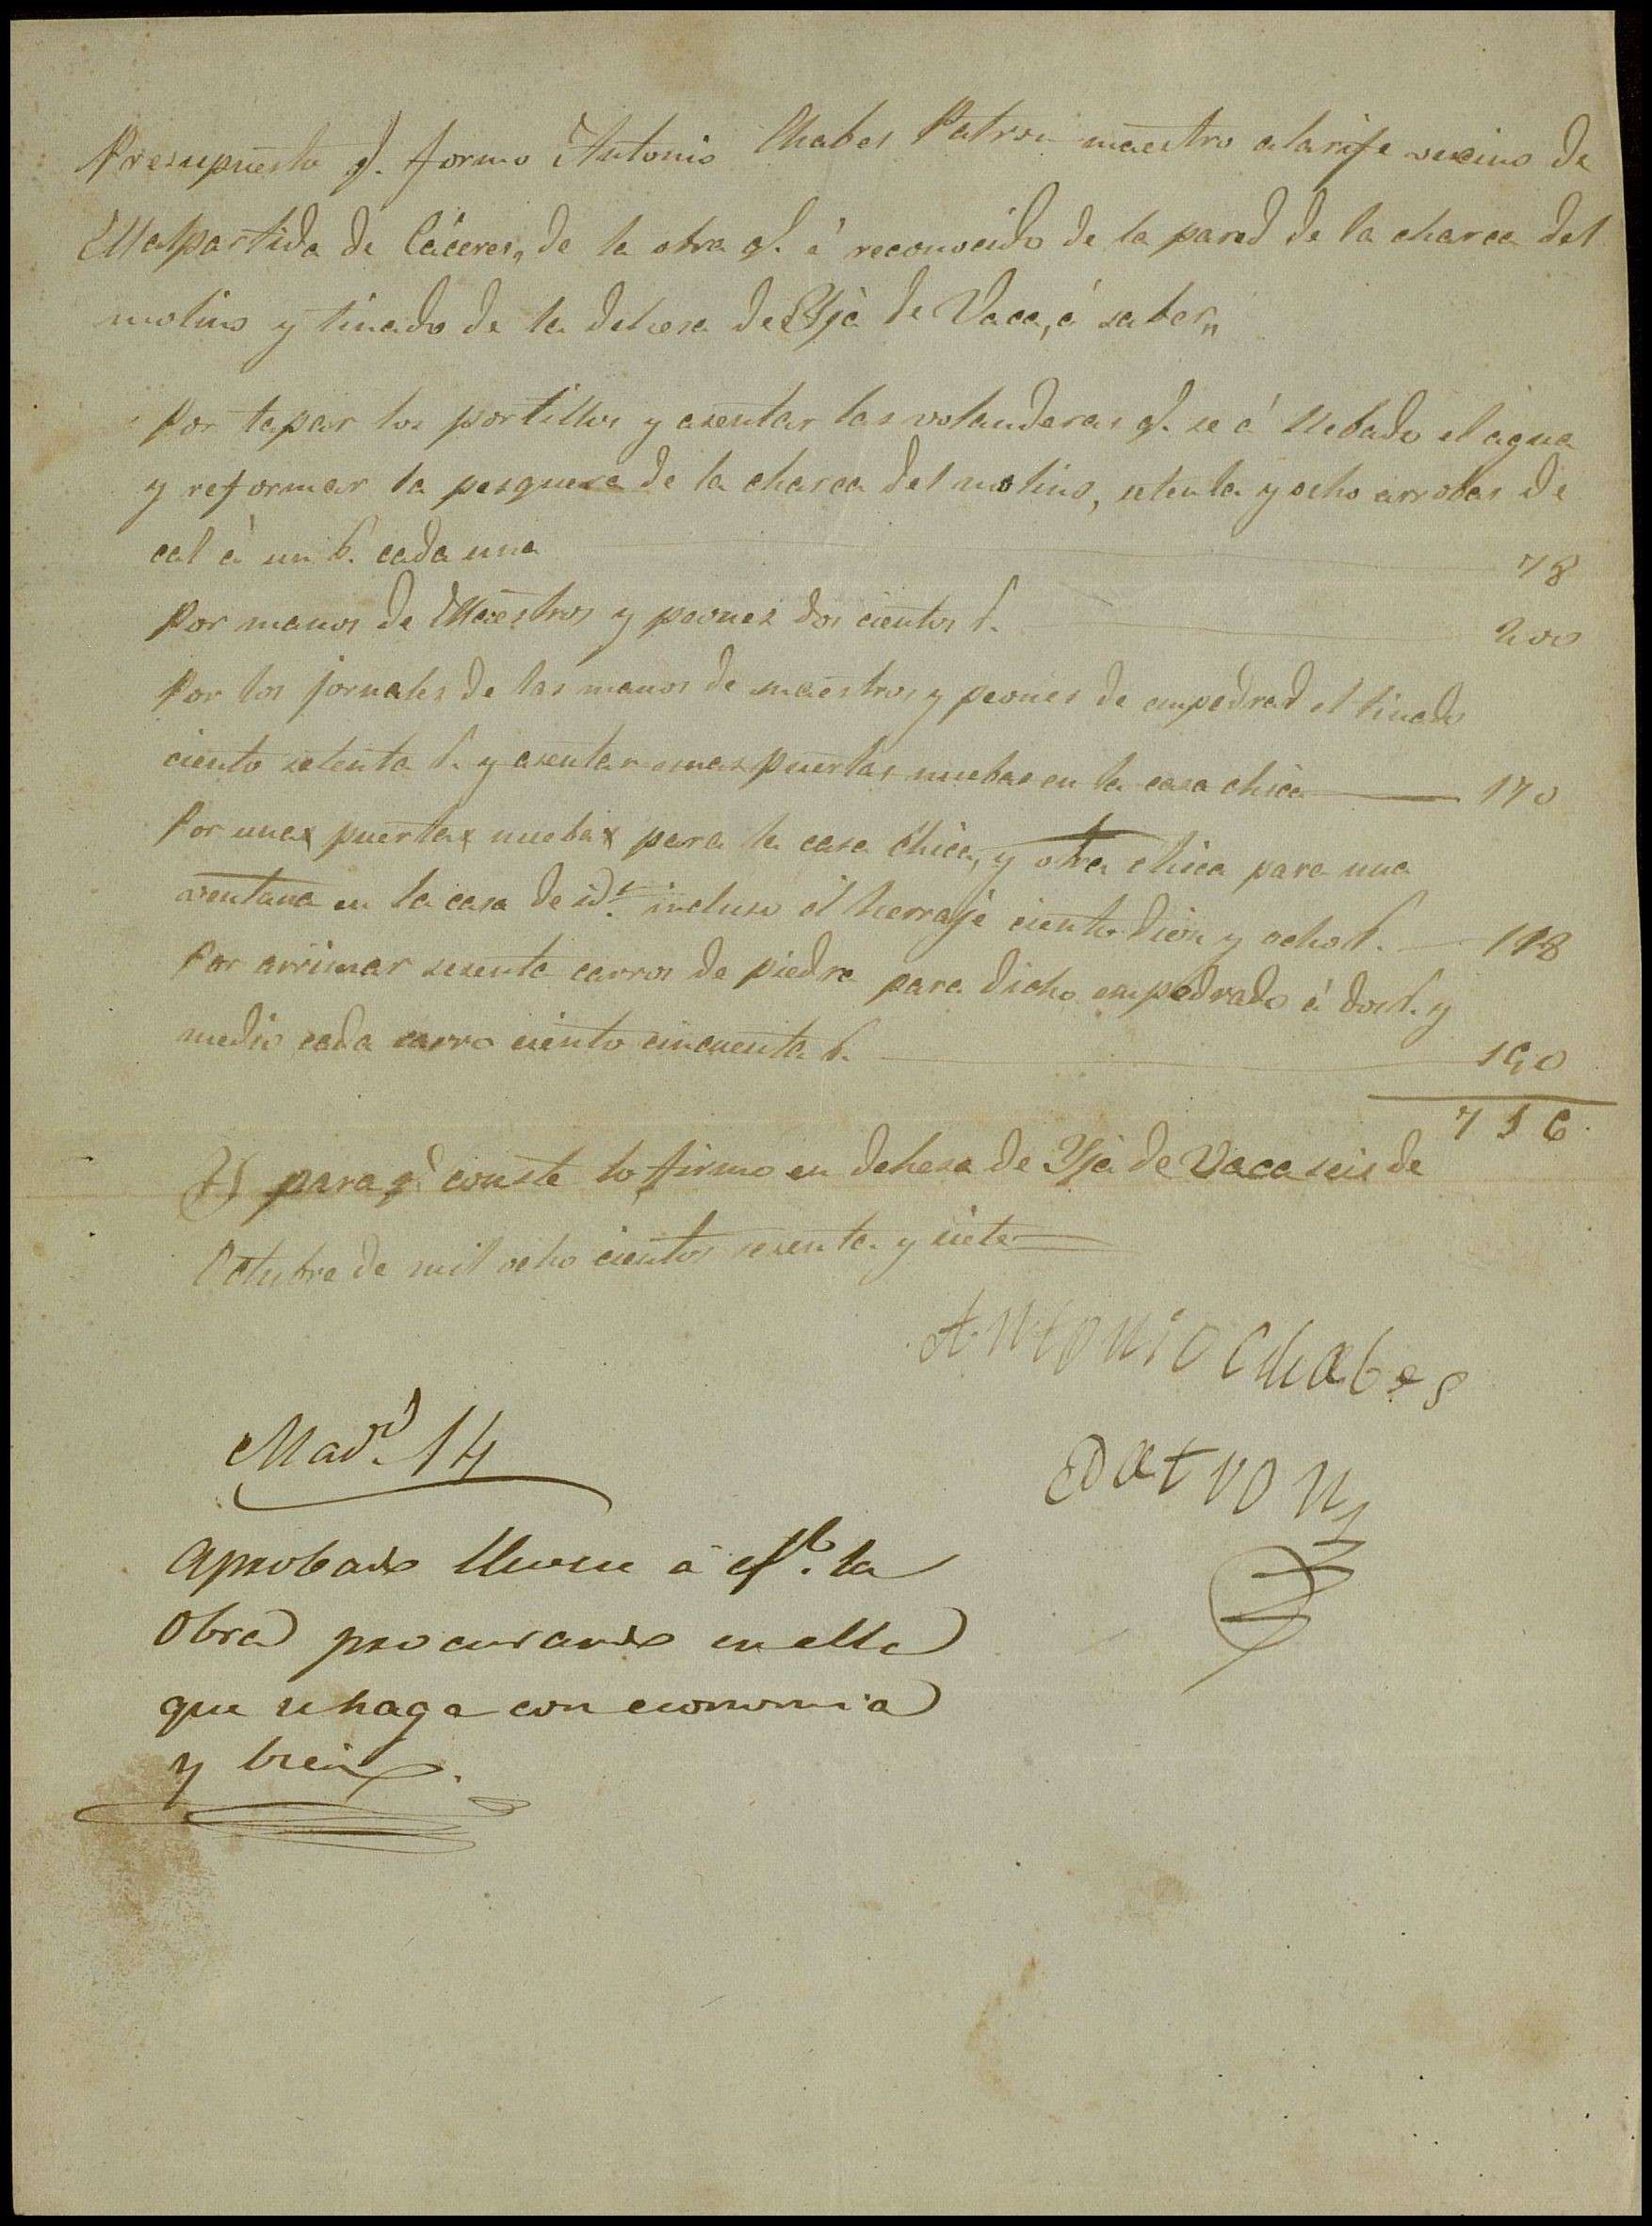 Presupuesto q. formo Antonio Chabes Patron maestro alarife vecino de
Malpartida de Cáceres, de la obra q. á reconocido de la pared de la charca del
molino y tinado de la dehesa de Yjá de Vaca, á saber,,
Por tapar los portillos y asentar las volanderas q. se á llebado el agua
y reformar la pesquera de la charca del molino, setenta y ocho arrobas de
cal á un r. cada una 78
Por manos de Maestros y peones dos cientos r. 200
Por los jornales de las manos de maestros y peones de empedrad el tinado
ciento setenta r. y asentar unas puertas nuebas en la casa chica 170
Por una puerta nueba para la casa chica, y otra chica para una
ventana en la casa de id. incluso el herraje ciento dien y ocho r. 118
Por arrimar sesenta carros de piedra para dicho empedrado á dos r. y
medio cada carro ciento cincuenta r. 150
716
Y para q.e conste lo firmo en dehesa de Yjá de Vaca seis de
Octubre de mil ocho cientos sesenta y siete
Antonio Chabes
Patron
Mad.d 14
Aprobado llevese á ef.to la
Obra procurando en ella
que se haga con economia
y bien.